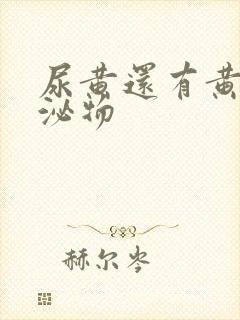 尿黄還有黄
泌物
赫尔岑